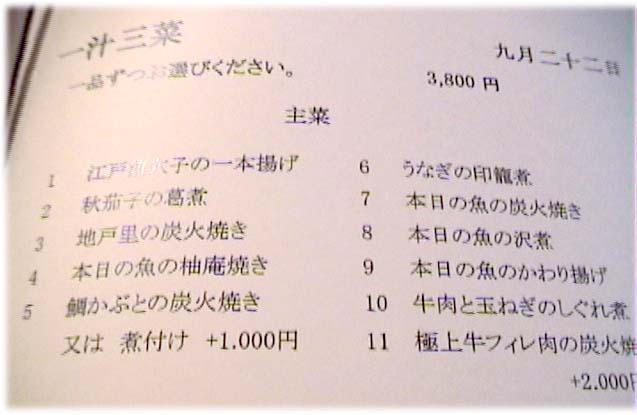 一汁三菜
九月二十二日
一品ずつお選びください。
3,800 円
主菜
1 江戸前穴子の一本揚げ
2 秋茄子の葛煮
3 地戸里の炭火焼き
4 本日の魚の柚庵焼き
5 鯛かぶとの炭火焼き
又は 煮付け +1.000円
6 うなぎの印籠煮
7 本日の魚の炭火焼き
8 本日の魚の沢煮
9 本日の魚のかわり揚げ
10 牛肉と玉ねぎのしぐれ煮
11 極上牛フィレ肉の炭火焼
+2.000円